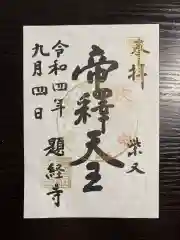 奉拝
柴又
帝釋天王
令和四年
九月四日
題経寺